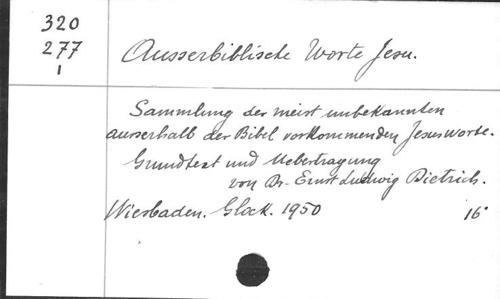 320
277
1
Ausserbiblische Worte Jesu.
Sammlung der meist unbekannten
ausserhalb der Bibel vorkommenden Jesusworte.
Grundtext und Uebertragung
von Dr. Ernst Ludwig Dietrich.
Wiesbaden. Glock. 1950 16°